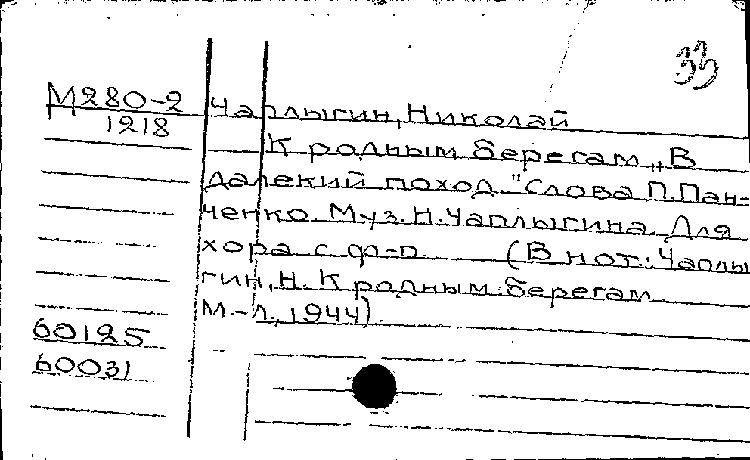 33
М280-2 Чаплыгин, Николай
1218
К родным берегам „В
далекий поход." Слова П.Пан-
ченко. Муз. Н.Чаплыгина. Для
хора с ф-п. (В нот.: Чаплы
гин, Н. К родным берегам
М.-Л., 1944).
60125
60031